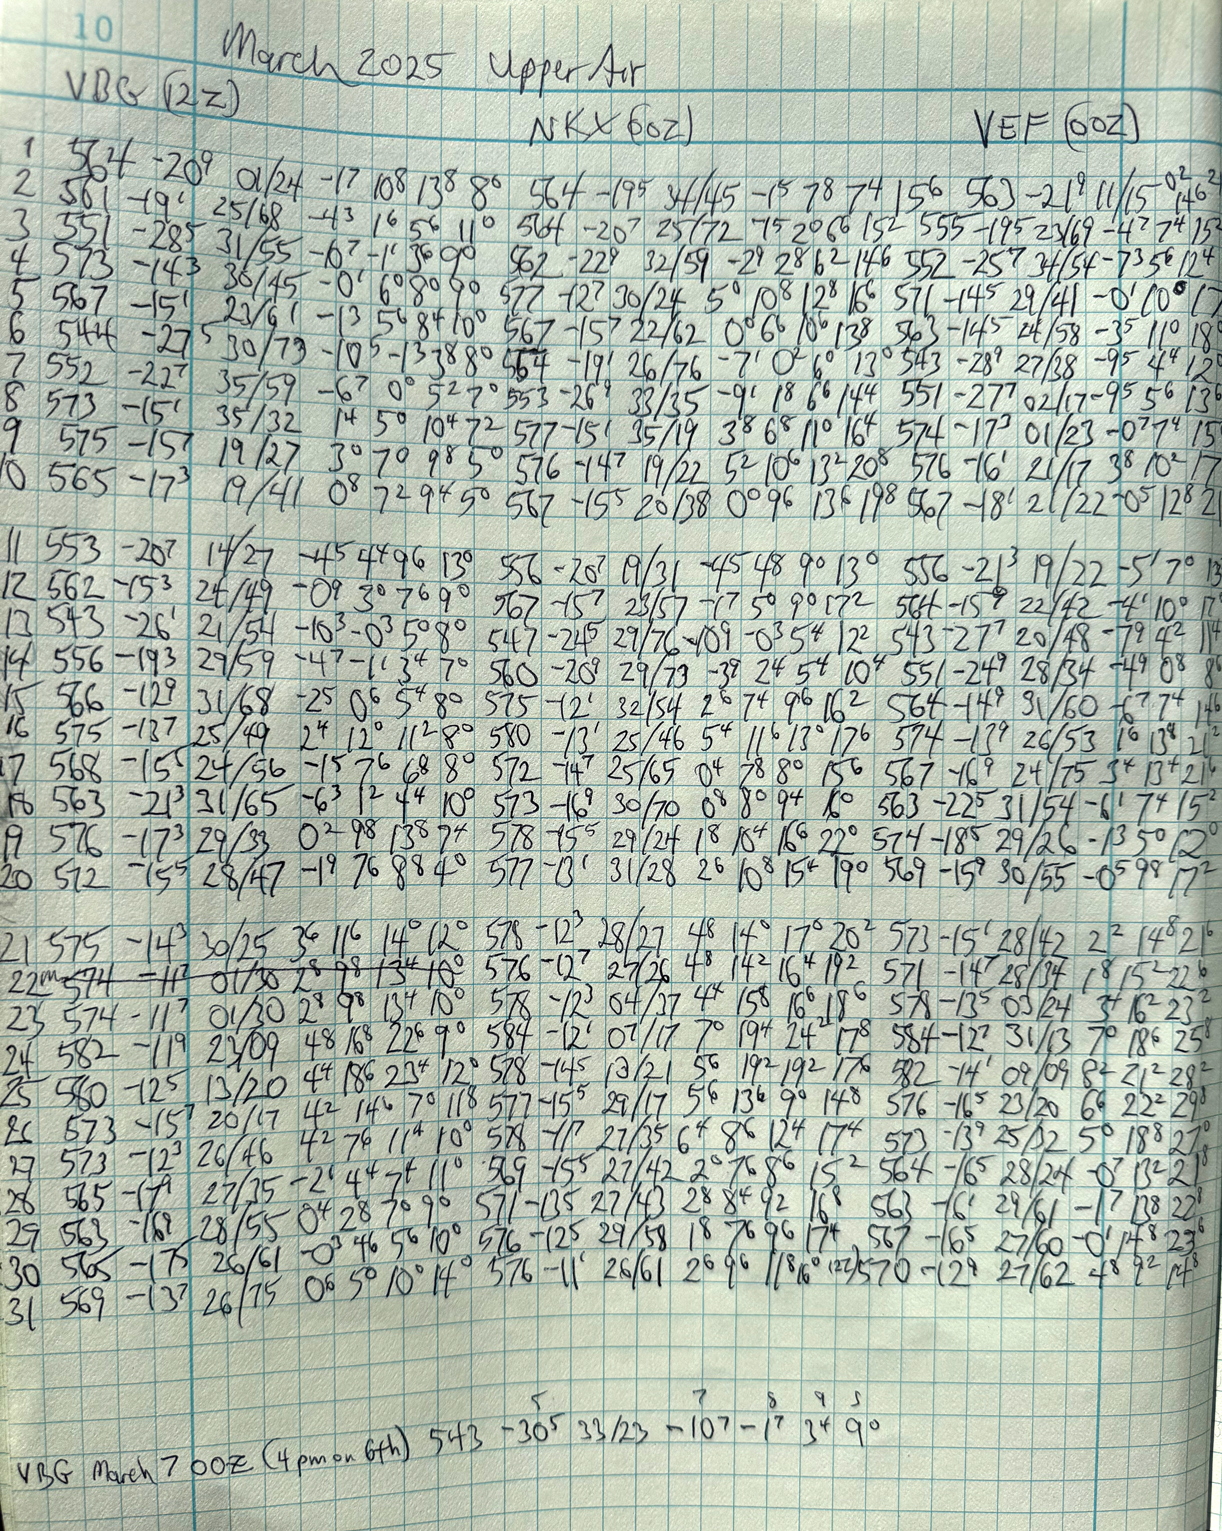 10
March 2025 Upper Air
VBG (12Z) NKX (00Z) VEF (00Z)
1 564 -20⁹ 01/24 -1⁷ 10⁸ 13⁸ 8⁶ 564 -19⁵ 34/45 -1⁵ 7⁸ 7⁴ 15⁶ 563 -21⁹ 11/15 0² 14⁶
2 561 -19¹ 25/68 -4³ 1⁶ 5⁶ 11⁰ 564 -20⁷ 25/72 7⁵ 2⁰ 6⁶ 15² 555 -19⁵ 23/69 -4⁷ 7⁴ 15²
3 551 -28⁵ 31/55 -10⁷ -1¹ 3⁶ 9⁰ 562 -22⁹ 32/59 -2⁹ 2⁸ 6² 14⁶ 552 -25⁷ 34/54 -7³ 5⁶ 12⁴
4 573 -14³ 36/45 -0¹ 6⁰ 8⁰ 9⁰ 577 -12⁷ 30/24 5⁰ 10⁸ 12⁸ 16⁶ 571 -14⁵ 29/41 -0¹ 10⁰ 17
5 567 -15¹ 23/61 -1³ 5⁶ 8⁴ 10⁰ 567 -15⁷ 22/62 0⁶ 6⁶ 10⁶ 13⁸ 563 -14⁵ 24/58 -3⁵ 11⁰ 18
6 544 -27⁵ 30/73 -10⁵ -1³ 3⁸ 8⁰ 564 -19¹ 26/76 -7¹ 0² 6⁰ 13⁰ 543 -28⁹ 27/38 -9⁵ 4⁴ 12
7 552 -22⁷ 35/59 -6⁷ 0⁰ 5² 7⁰ 553 -26⁹ 33/35 -9¹ 1⁸ 6⁶ 14⁴ 551 -27⁷ 02/17 -9⁵ 5⁶ 13⁶
8 573 -15¹ 35/32 1⁴ 5⁰ 10⁴ 7² 577 -15¹ 35/19 3⁸ 6⁸ 11⁰ 16⁴ 574 -17³ 01/23 -0⁷ 7⁴ 15
9 575 -15⁷ 19/27 3⁰ 7⁰ 9⁸ 5⁰ 576 -14⁷ 19/22 5² 10⁶ 13² 20⁸ 576 -16¹ 21/17 3⁸ 10² 17
10 565 -17³ 19/41 0⁸ 7² 9⁴ 5⁰ 567 -15⁵ 20/38 0⁰ 9⁶ 13⁶ 19⁸ 567 -18¹ 21/22 -0⁵ 12⁸ 2
11 553 -20⁷ 14/27 -4⁵ 4⁴ 9⁶ 13⁰ 556 -20⁷ 19/31 -4⁵ 4⁸ 9⁰ 13⁰ 556 -21³ 19/22 -5¹ 7⁰ 13
12 562 -15³ 24/49 -0⁹ 3⁰ 7⁶ 9⁰ 567 -15⁷ 23/57 -1⁷ 5⁰ 9⁰ 17² 564 -15⁹ 22/42 -4¹ 10⁰ 17
13 543 -26¹ 21/54 -10³ -0³ 5⁰ 8⁰ 547 -24⁵ 29/76 -10⁹ -0³ 5⁴ 12² 543 -27⁷ 20/48 -7⁹ 4² 11⁴
14 556 -19³ 29/59 -4⁷ -1¹ 3⁴ 7⁰ 560 -20⁹ 29/73 -3⁹ 2⁴ 5⁴ 10⁴ 551 -24⁹ 28/34 -4⁹ 0⁸ 8⁶
15 566 -12⁹ 31/68 -2⁵ 0⁶ 5⁴ 8⁰ 575 -12¹ 32/54 2⁶ 7⁴ 9⁶ 16² 564 -14⁹ 31/60 -6⁷ 7⁴ 14⁶
16 575 -13⁷ 25/49 2⁴ 12⁰ 11² 8⁰ 580 -13¹ 25/46 5⁴ 11⁶ 13⁰ 17⁶ 574 -13⁹ 26/53 1⁶ 13⁸ 21²
17 568 -15⁵ 24/56 -1⁵ 7⁶ 6⁸ 8⁰ 572 -14⁷ 25/65 0⁴ 7⁸ 8⁰ 15⁶ 567 -16⁹ 24/75 3⁴ 13⁴ 21⁶
18 563 -21³ 31/65 -6³ 1² 4⁴ 10⁰ 573 -16⁹ 30/70 0⁸ 8⁰ 9⁴ 16⁰ 563 -22⁵ 31/54 -6¹ 7⁴ 15²
19 576 -17³ 29/33 0² 9⁸ 13⁸ 7⁴ 578 -15⁵ 29/24 1⁸ 10⁴ 16⁶ 22⁰ 574 -18⁵ 29/26 -1³ 5⁰ 12⁰
20 572 -15⁵ 28/47 -1⁹ 7⁶ 8⁸ 4⁰ 577 -13¹ 31/28 2⁶ 10⁸ 15⁴ 19⁰ 569 -15⁹ 30/55 -0⁵ 9⁸ 17²
21 575 -14³ 30/25 3⁶ 11⁶ 14⁰ 12⁰ 578 -12³ 28/27 4⁸ 14⁰ 17⁰ 20² 573 -15¹ 28/42 2² 14⁸ 21⁶
22 m 574 -11⁷ 01/30 2⁸ 9⁸ 13⁴ 10⁰ 576 -12⁷ 27/26 4⁸ 14² 16⁴ 19² 571 -14⁷ 28/34 1⁸ 15² 22⁶
23 574 -11⁷ 01/30 2⁸ 9⁸ 13⁴ 10⁰ 578 -12³ 04/37 4⁴ 15⁸ 16⁶ 18⁶ 578 -13⁵ 03/24 3⁴ 16² 23²
24 582 -11⁹ 23/09 4⁸ 16⁸ 22⁶ 9⁰ 584 -12¹ 07/17 7⁰ 19⁴ 24² 17⁸ 584 -12⁷ 31/13 7⁰ 18⁶ 25⁸
25 580 -12⁵ 13/20 4⁴ 18⁶ 23⁴ 12⁰ 578 -14⁵ 12/21 5⁶ 19² 19² 17⁶ 582 -14¹ 09/09 8² 21² 28²
26 573 -15⁷ 20/17 4² 14⁶ 7⁰ 11⁸ 577 -15⁵ 29/17 5⁶ 13⁶ 9⁰ 14⁸ 576 -16⁵ 23/20 6⁶ 22² 29⁸
27 573 -12³ 26/46 4² 7⁶ 11⁴ 10⁰ 578 -11⁷ 27/35 6⁴ 8⁶ 12⁴ 17⁴ 573 -13⁹ 25/32 5⁰ 18⁸ 27⁰
28 565 -17⁹ 27/35 -2¹ 4⁴ 7⁴ 11⁰ 569 -15⁵ 27/42 2⁰ 7⁶ 8⁶ 15² 564 -16⁵ 28/24 -0⁷ 13² 21⁸
29 563 -16⁹ 28/55 0⁴ 2⁸ 7⁰ 9⁰ 571 -13⁵ 27/43 2⁸ 8⁴ 9² 16⁸ 563 -16¹ 29/61 -1⁷ 13⁸ 22⁸
30 565 -17⁵ 26/61 -0³ 4⁶ 5⁶ 10⁰ 576 -12⁵ 29/58 1⁸ 7⁶ 9⁶ 17⁴ 567 -16⁵ 27/60 -0¹ 14⁸ 23⁶
31 569 -13⁷ 26/75 0⁶ 5⁰ 10⁰ 14⁰ 576 -11¹ 26/61 2⁶ 9⁶ 11⁸ 16⁰ (12Z) 570 -12⁹ 27/62 4⁸ 9² 14⁸
5 7 8 9 s
VBG March 7 00Z (4pm on 6th) 543 -30⁵ 33/23 -10⁷ -1⁷ 3⁴ 9⁰